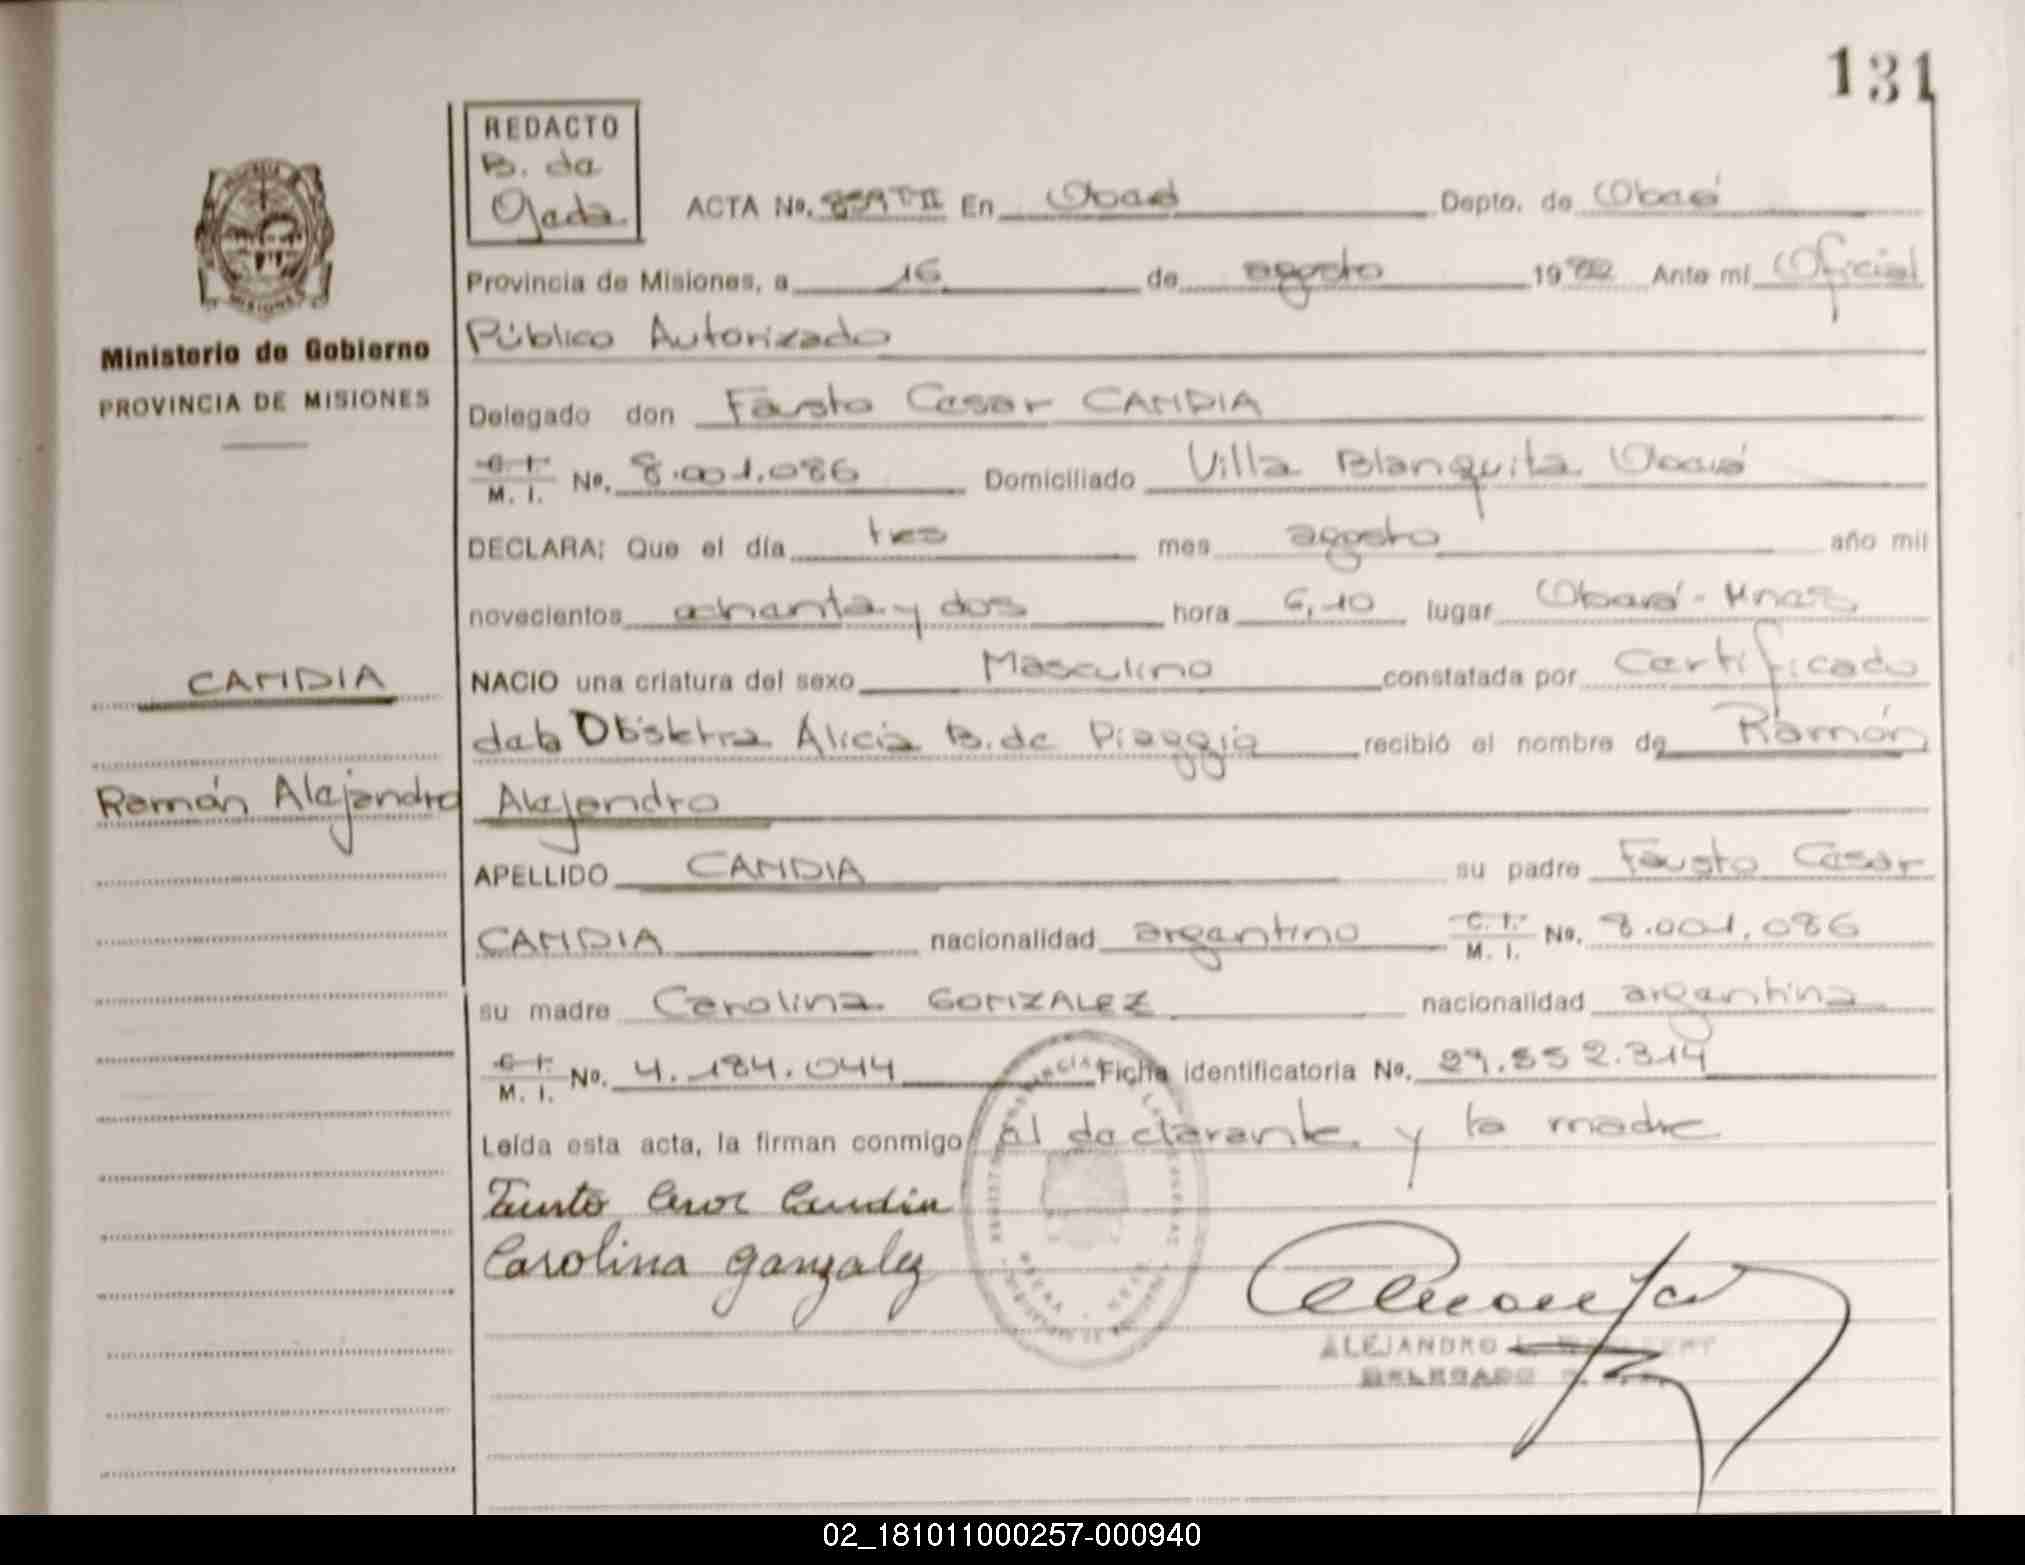 131
REDACTO
B. da
Ojeda
ACTA No. 859 T II En Oberá Depto. de Oberá
Provincia de Misiones, a 16 de agosto 1982 Ante mí Oficial
Público Autorizado
Ministerio de Gobierno
PROVINCIA DE MISIONES
Delegado don Fausto Cesar CANDIA
C. I.
M. I. No. 8.001.086 Domiciliado Villa Blanquita Oberá
DECLARA: Que el día tres mes agosto año mil
novecientos ochenta y dos hora 6,10 lugar Oberá - Mnes
CANDIA
NACIO una criatura del sexo Masculino constatada por Certificado
de la Obstetra Alicia B. de Piaggio recibió el nombre de Ramón
Ramón Alejandro
Alejandro
APELLIDO CANDIA su padre Fausto Cesar
CANDIA nacionalidad argentino C. I.
M. I. No. 8.001.086
su madre Carolina GONZALEZ nacionalidad argentina
C. I.
M. I. No. 4.184.044 Ficha identificatoria No. 29.552.314
Leída esta acta, la firman conmigo el declarante y la madre
Fausto Cesar Candia
Carolina Gonzalez
ALEJANDRO
DELEGADO
02_181011000257-000940